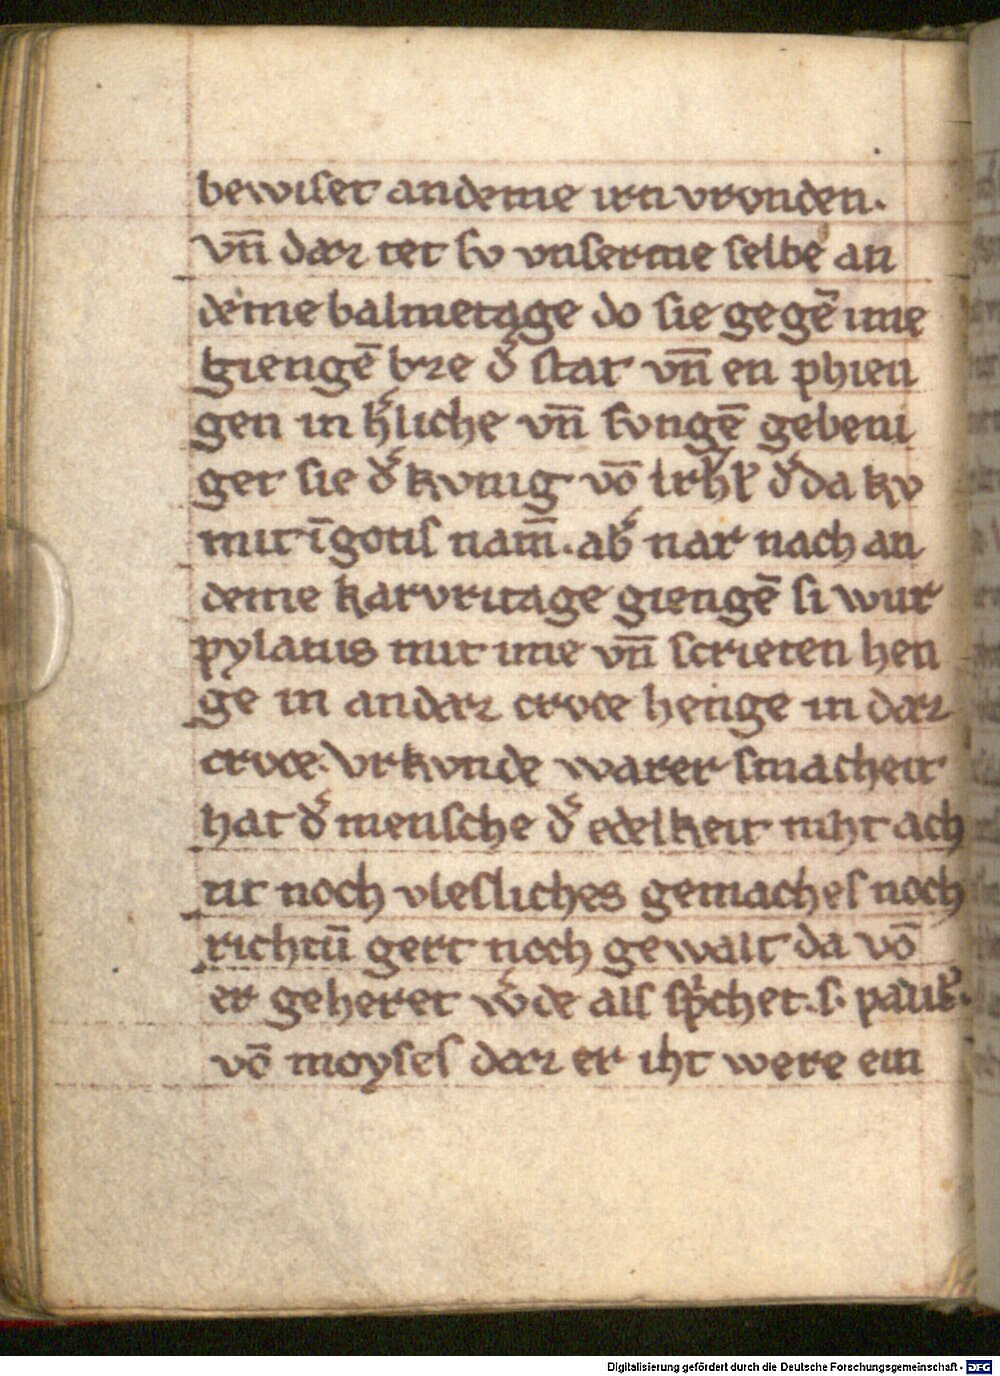 bewiset andeme irn vronden.
vn̄ daz tet sv vnserme selbe an
deme balmetage do sie gegē ime
giengē vze d᷒ stat vn̄ en phien
gen in h᷒liche vn̄ svngē gebeni
get sie d᷒ kvnig vō isrl̄ d᷒ da kv
mit ī gotis nam̄. ab᷒ nar nach an
deme karvritage giengē si wur
pylatus mit ime vn̄ scrieten hen
ge in an daz cruce henge in daz
cruce. Vrkvnde warer smacheit
hat d᷒ mensche d᷒ edelkeit niht ach
tit noch vlesliches gemaches noch
richtū gert noch gewalt da vō
er geheret w᷒de als sp᷒chet. s. paul᷒.
vō moyses daz er iht were ein
Digitalisierung gefördert durch die Deutsche Forschungsgemeinschaft - DFG